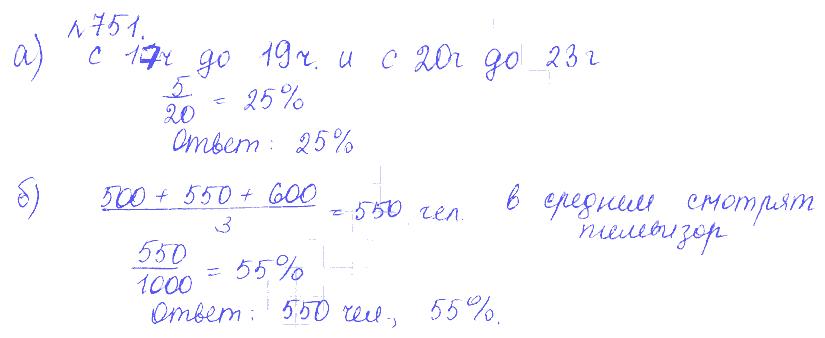 №751.
а) с 17ч до 19ч. и с 20ч до 23ч
5/20 = 25%
Ответ: 25%
б) (500 + 550 + 600)/3 = 550 чел. в среднем смотрят
телевизор
550/1000 = 55%
Ответ: 550 чел., 55%.